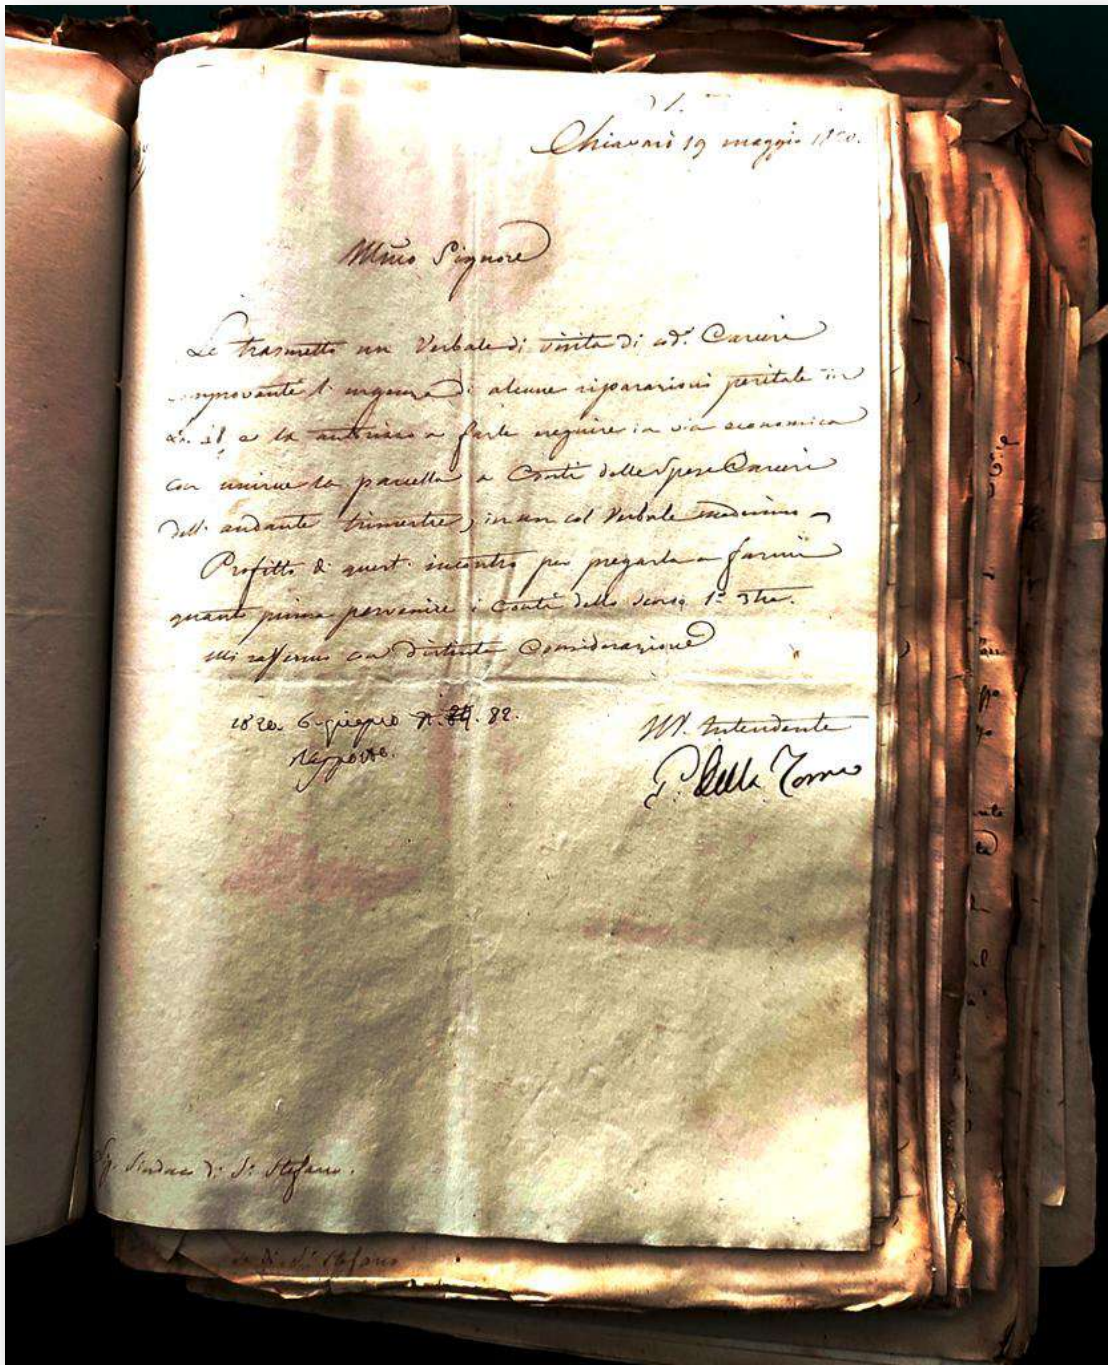 Chiavari 19 maggio 1820.
Illmo Signore
Le trasmetto un Verbale di visita di cod.e Carceri
comprovante l'urgenza di alcune riparazioni peritate in
Ln. e la autorizzo a farle eseguire in via economica
con unirne la parcella a Conti delle Spese Carceri
dell'andante trimestre, in un col Verbale medesimo
Profitto di quest'incontro per pregarla a farmi
quanto prima pervenire i Conti dello scorso 1.o 3tre.
Mi raffermo con distinta Considerazione
1820. 6 giugno N. 82.
Rapporto.
Intendente
P. Della Torre
Sig. Sindaco di S.to Stefano.
di S.to Stefano